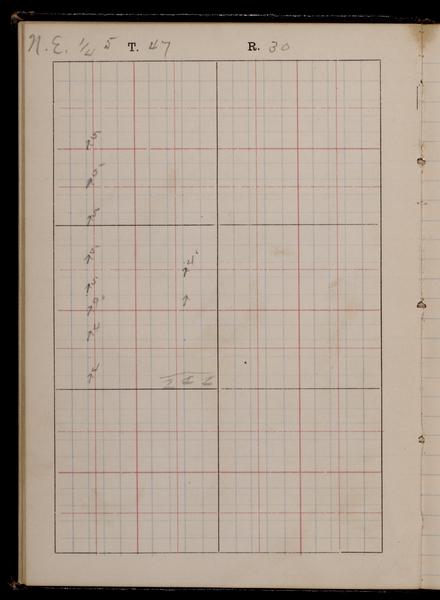 N.E. 1/4 5 T. 47 R. 30
↑5
↑5
↑5
↑5
↑4°
↑5
↑
↑4
↑4